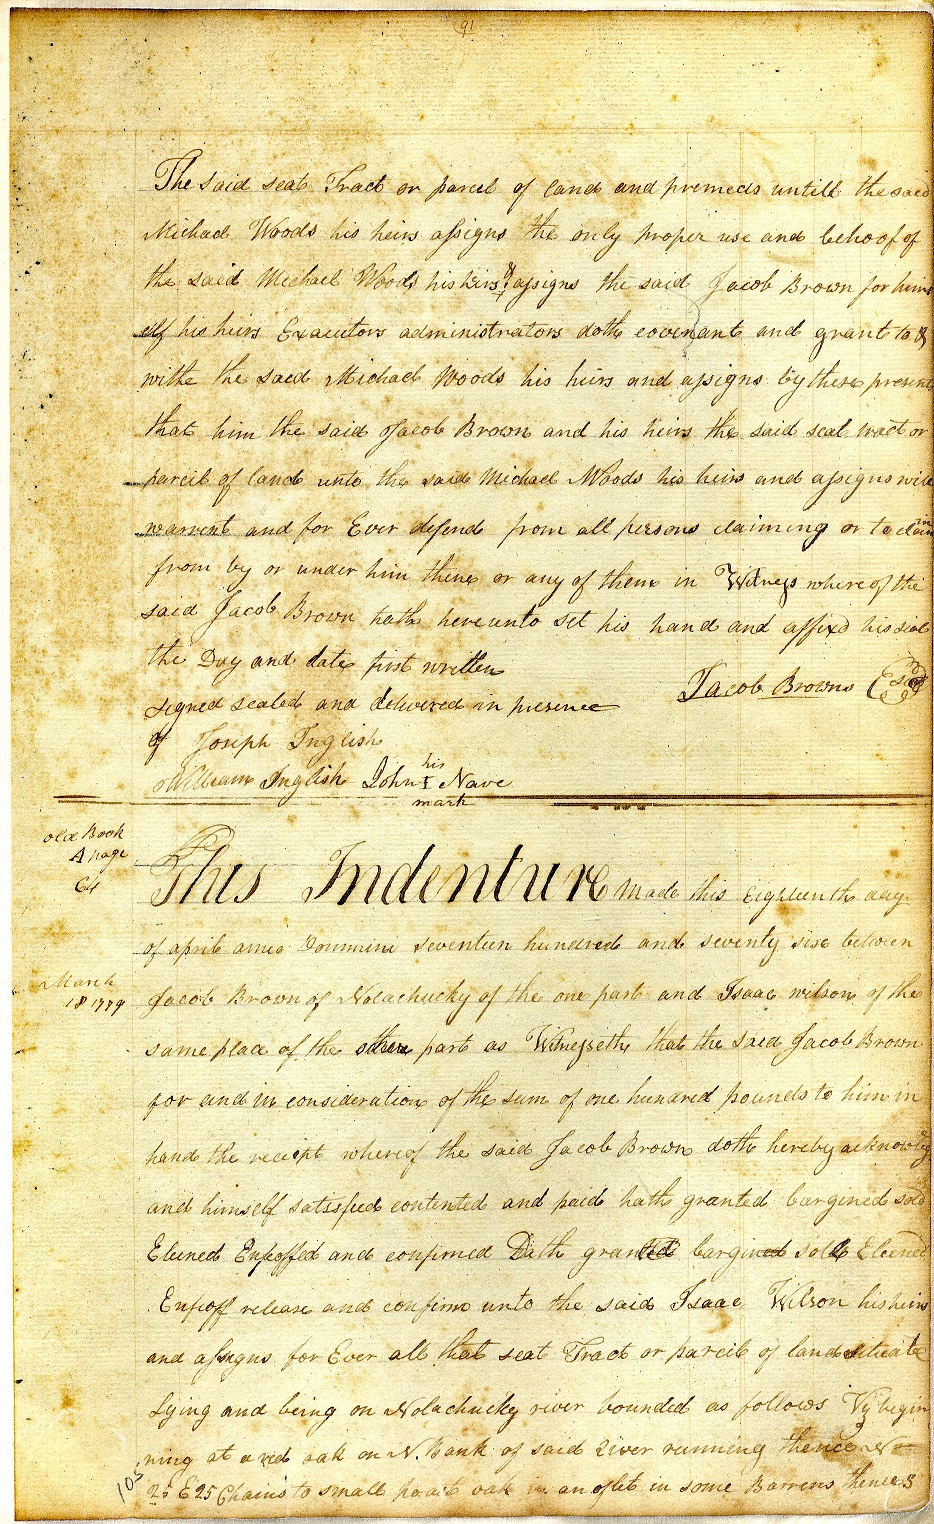 91
The said seat Tract or parcel of land and premeds untill the said
Michael Woods his heirs assigns the only proper use and behoof of
the said Michael Woods his heirs & assigns the said Jacob Brown for hims
elf his heirs Executors administrators doth covenant and grant to &
withe the saed Michael Woods his heirs and assigns by these presents
that him the said Jacob Brown and his heirs the said seat tract or
parcil of land unto the said Michael Woods his heirs and assigns will
warrent and for Ever defend from all persons claiming or to claim
from by or under him them or any of them in Witness where of the
said Jacob Brown hath here unto set his hand and affixd his seal
the Day and date first written
Jacob Browns
signed sealed and delivered in presence
of Joseph Inglish
William Inglish John his I mark Nave
old Book
A page
64
This Indenture made this Eighteenth day
of april anno Dommini seventeen hundred and seventy six between
March
18 1779
Jacob Brown of Nolachucky of the one part and Isaac wilson of the
same place of the other part as Witnesseth that the said Jacob Brown
for and in consideration of the sum of one hundred pounds to him in
hand the receipt whereof the said Jacob Brown doth hereby acknowleg
and himself satisfied contented and paid hath granted bargined sold
Eleened Enfeoffed and confirmed Doth grant bargin sell Eleened
Enfeoff release and confirm unto the said Isaac Wilson his heirs
and assigns for Ever all that seat Tract or parcil of land situate
Lying and being on Nolachucky river bounded as follows Vz begin
ning at a red oak on N. Bank of said River running thence N
105
25 E 25 Chains to small oak in an oflet in some Barrens thence S